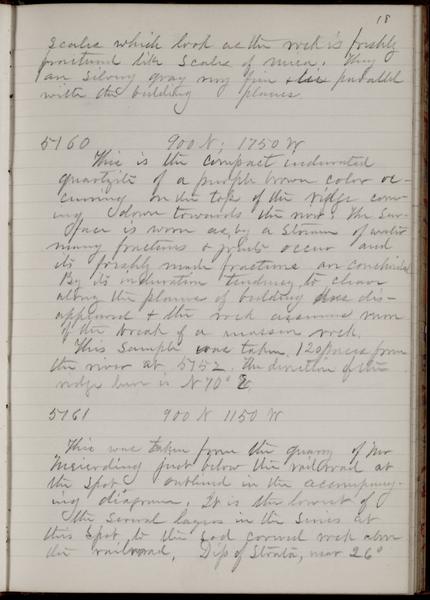 18
scales which look as the rock is freshly
fractured like scales of mica. They
are silvery gray very fine & lie parallel
with the bedding planes.
5160 900 N; 1750 W
This is the compact indurated
quartzite of a purple brown color oc-
curring on the top of the ridge com-
ing down towards the river. The sur-
face is worn as by a stream of water
many fractures & joints occur and
its freshly made fractures are conchoidal
By its induration tendency to cleave
along the planes of bedding has dis-
appeared & the rock assumes more
of the break of a massive rock.
This sample was taken 120 paces from
the river at 5152. The direction of the
ridge here is N 70° E
5161 900 N 1150 W
This was taken from the quarry of Mr
Meierding just below the railroad at
the spot outlined in the accompany-
ing diagram. It is the lowest of
the several layers in the series at
this spot to the sod covered rock above
the railroad. Dip of Strata, near 26°